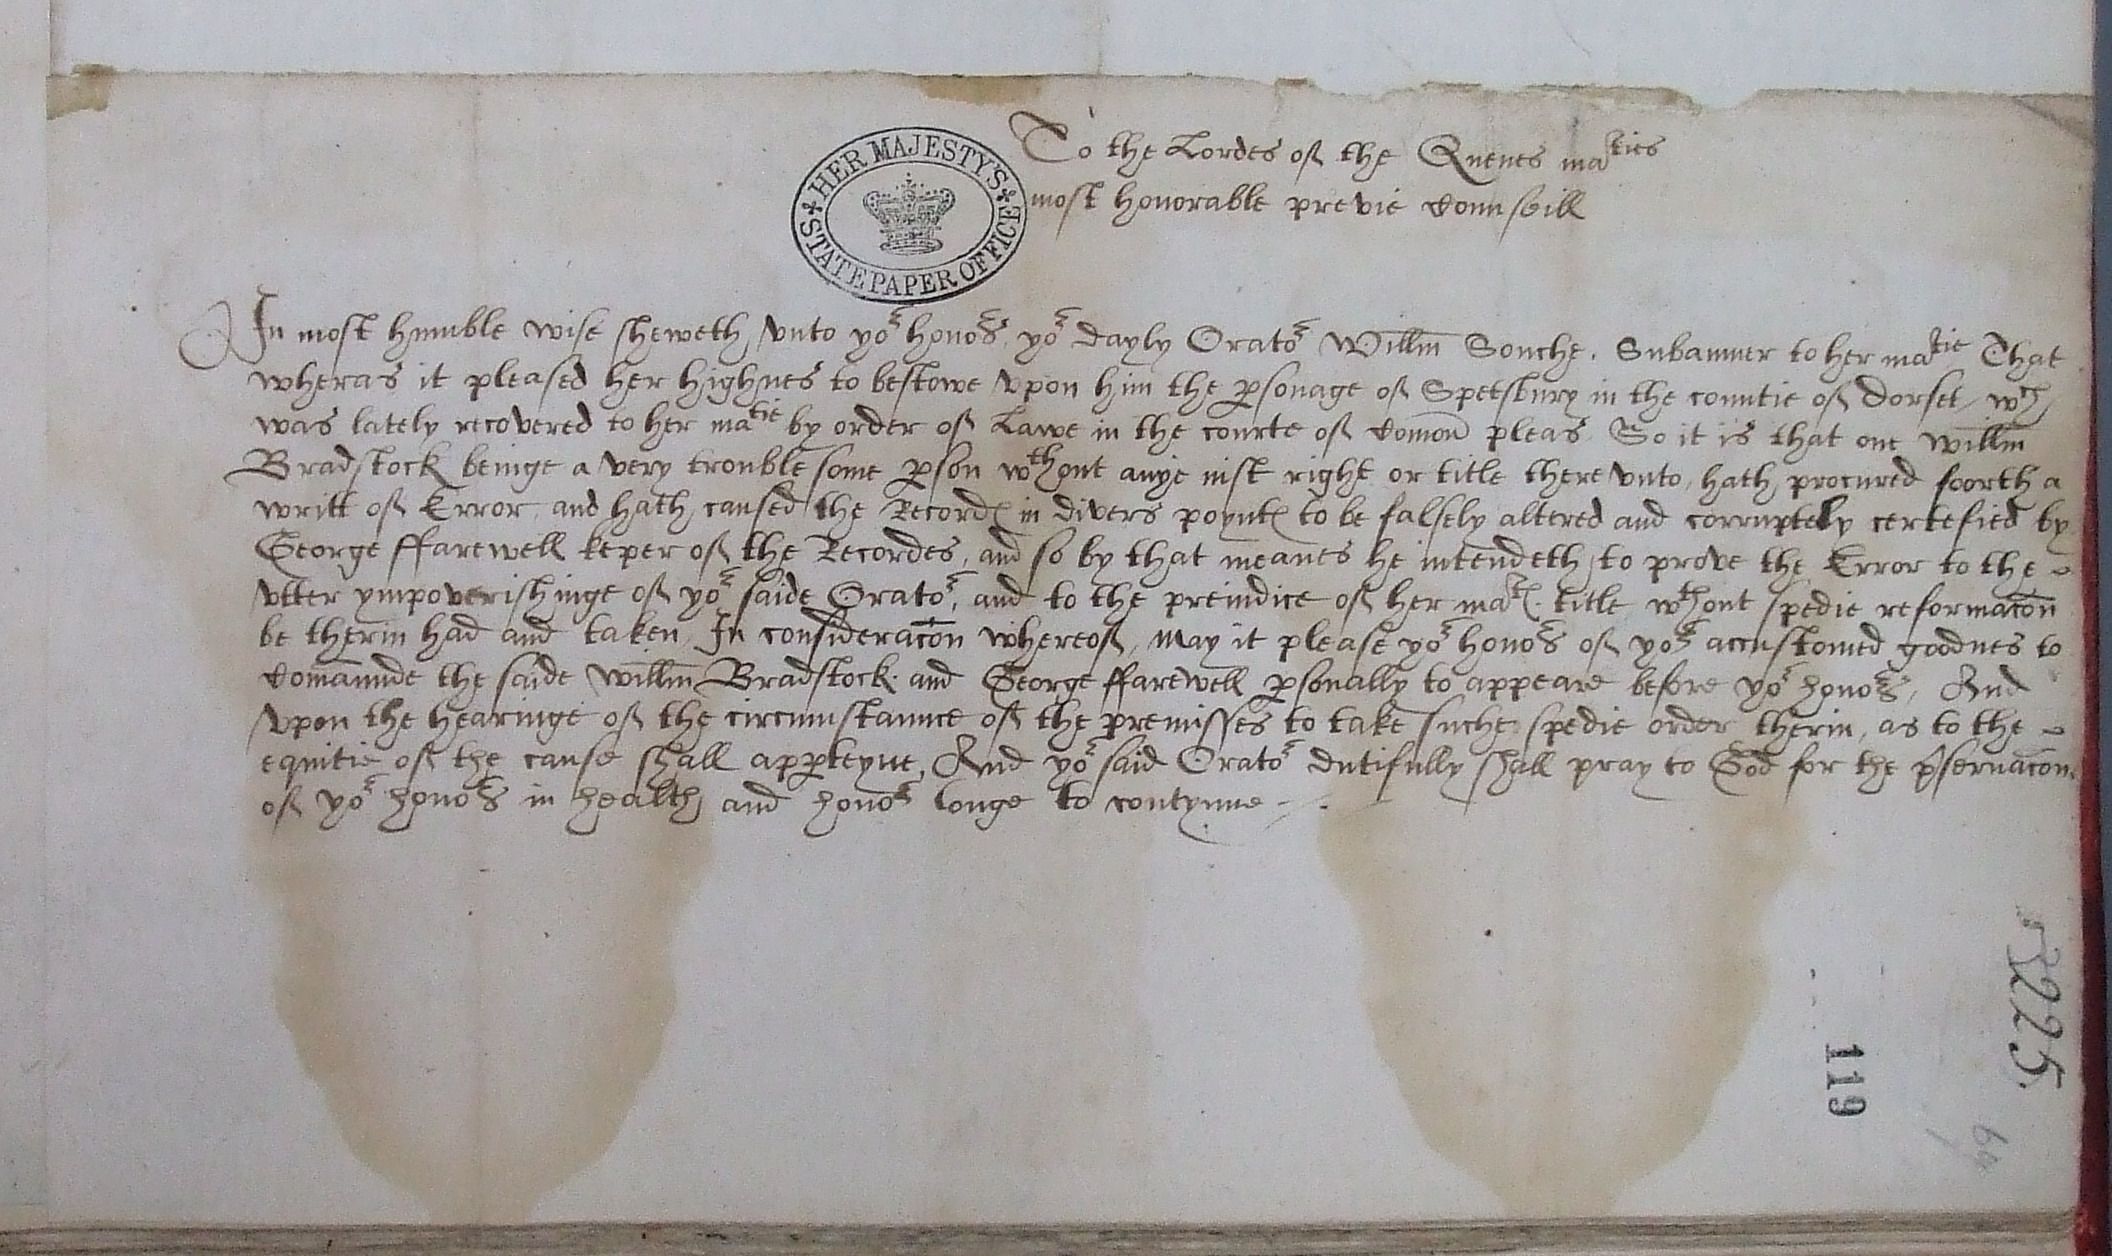 To the Lordes of the Quenes maties
most honorable previe Counseill
HER MAJESTY'S
STATE PAPER OFFICE
In most humble wise sheweth vnto yor honors, yor dayly Orator Willm Souche, Subamner to her matie That
wheras it pleased her highnes to bestowe vpon him the psonage of Spetsbury in the countie of Dorset, wch
was lately recovered to her matie by order of Lawe in the courte of Comon pleas So it is that one willm
Bradstock beinge a very troublesome pson wthout anye iust right or title there vnto, hath procured foorth a
writt of Error, and hath caused the Recordes in divers poyntes to be falsely altered and corruptely certefied by
George ffarewell keper of the Recordes, and so by that meanes he intendeth to prove the Error to the
vtter ympoverishinge of yor saide Orator, and to the preiudice of her mates title wthout spedie reformacon
be therin had and taken, In consideracon whereof, May it please yor honors of yor accustomed goodnes to
Comaunde the saide willm Bradstock and George ffarewell psonally to appeare before yor honors, And
vpon the hearinge of the circumstaunce of the premisses to take suche spedie order therin, as to the
equitie of the cause shall apperteyne, And yor said Orator dutifully shall pray to God for the pservacon
of yor honors in health and honor longe to contynue
119